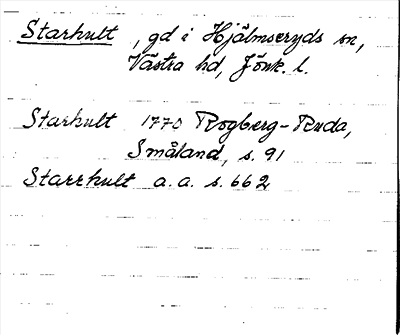 Starhult, gd i Hjälmseryds sn,
Västra hd, Jönk. l.
Starhult 1770 Rogberg-Ruda,
Småland, s. 91
Starrhult a.a. s. 662